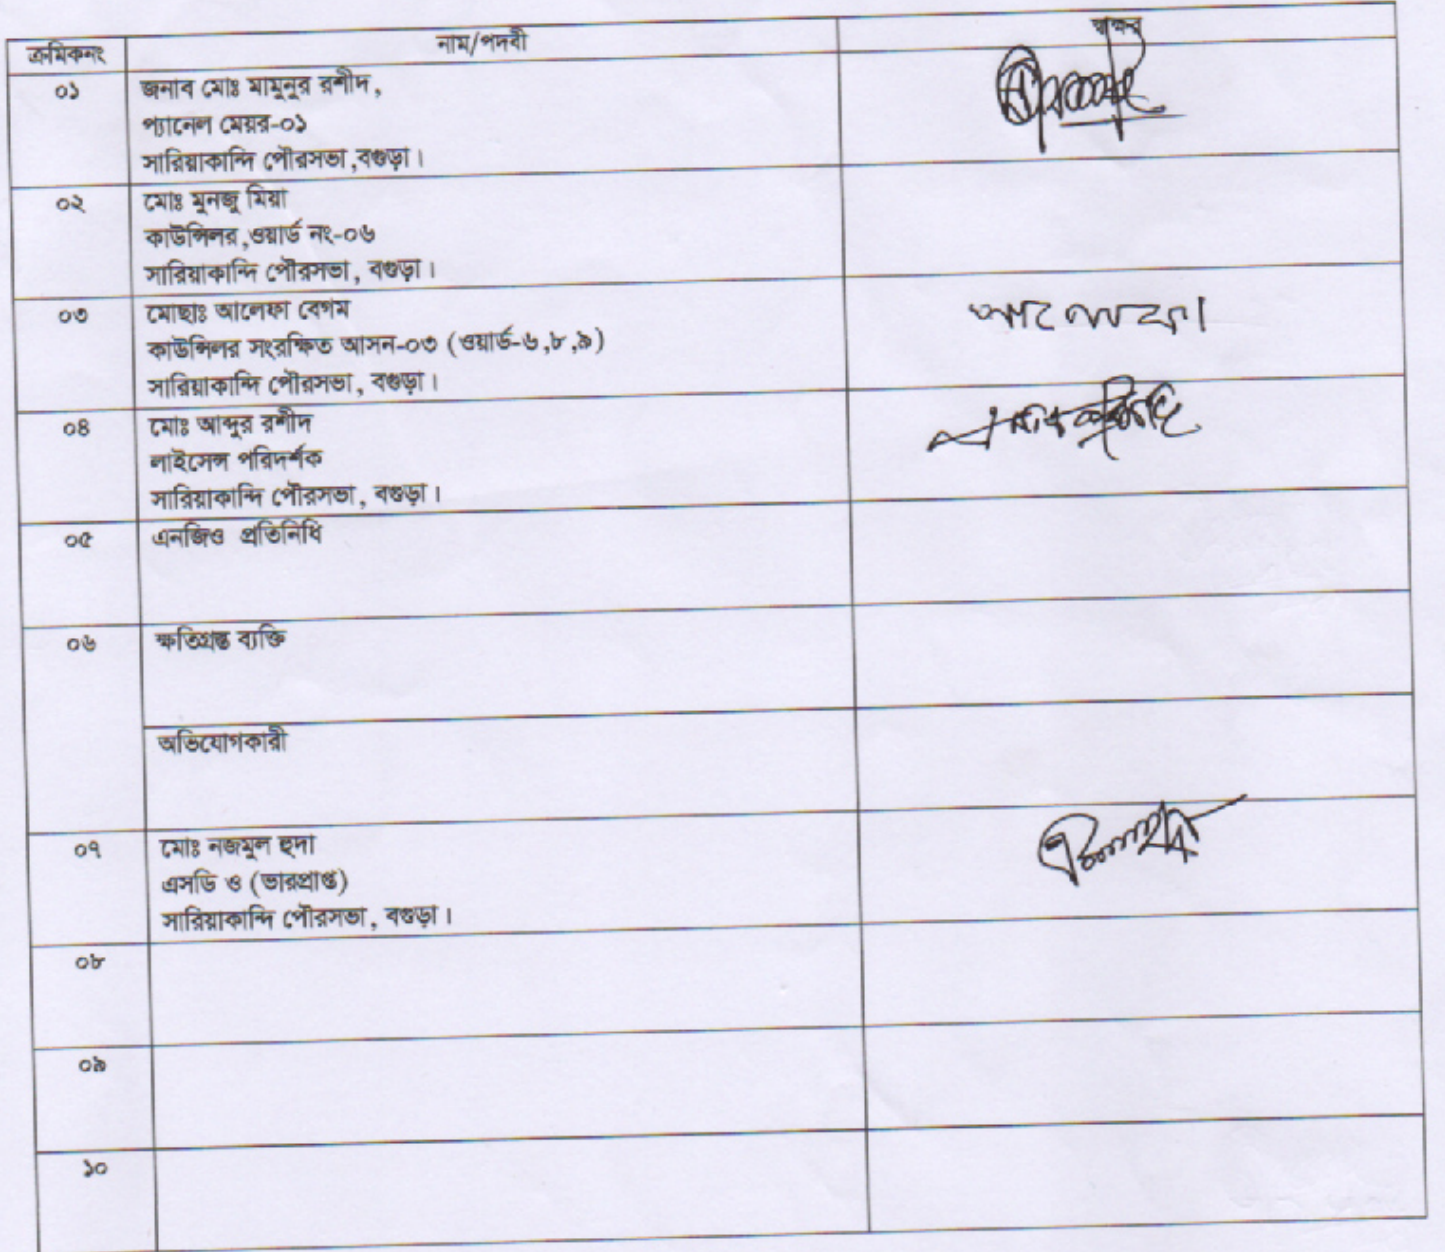 ক্রমিকনং নাম/পদবী স্বাক্ষর
০১ জনাব মোঃ মামুনুর রশীদ,
প্যানেল মেয়র-০১
সারিয়াকান্দি পৌরসভা,বগুড়া।
০২ মোঃ মুনজু মিয়া
কাউন্সিলর,ওয়ার্ড নং-০৬
সারিয়াকান্দি পৌরসভা, বগুড়া।
০৩ মোছাঃ আলেফা বেগম
কাউন্সিলর সংরক্ষিত আসন-০৩ (ওয়ার্ড-৬,৮,৯)
সারিয়াকান্দি পৌরসভা, বগুড়া।
০৪ মোঃ আব্দুর রশীদ
লাইসেন্স পরিদর্শক
সারিয়াকান্দি পৌরসভা, বগুড়া।
০৫ এনজিও প্রতিনিধি
০৬ ক্ষতিগ্রস্ত ব্যক্তি
অভিযোগকারী
০৭ মোঃ নজমুল হুদা
এসডি ও (ভারপ্রাপ্ত)
সারিয়াকান্দি পৌরসভা, বগুড়া।
০৮
০৯
১০